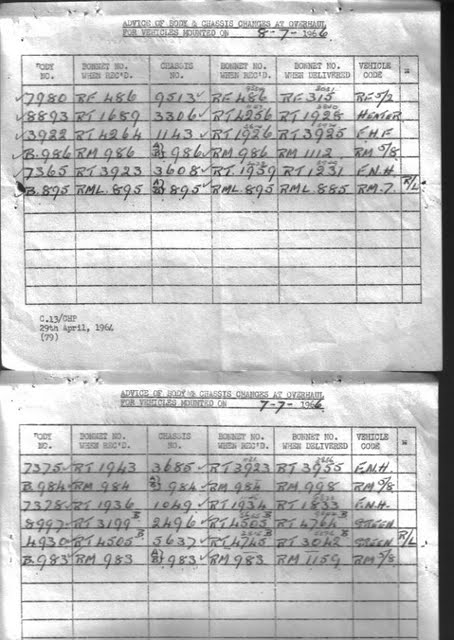 ADVICE OF BODY & CHASSIS CHANGES AT OVERHAUL
FOR VEHICLES MOUNTED ON 8-7-1966
BODY NO. BONNET NO. WHEN REC'D. CHASSIS NO. BONNET NO. WHEN REC'D. BONNET NO. WHEN DELIVERED VEHICLE CODE
7980 RF 486 9513 RF 486 RF 315 RF 5/2
8893 RT 1689 3306 RT 4256 RT 1928 HEATER
3922 RT 4264 1143 RT 1926 RT 3925 F.H.F.
B.986 RM 986 986 RM 986 RM 1112 RM 5/8
7365 RT 3923 3608 RT. 1959 RT 1231 F.N.H.
B.895 RML.895 895 RML.895 RML.885 RM.7. R/L
C.13/CHP
29th April, 1964
(79)
ADVICE OF BODY & CHASSIS CHANGES AT OVERHAUL
FOR VEHICLES MOUNTED ON 7-7-1966
BODY NO. BONNET NO. WHEN REC'D. CHASSIS NO. BONNET NO. WHEN REC'D. BONNET NO. WHEN DELIVERED VEHICLE CODE
7375 RT 1943 3685 RT 3923 RT 3955 F.N.H.
B.984 RM 984 984 RM 984 RM 998 RM 5/8
7378 RT 1936 1049 RT 1934 RT 1833 F.N.H.
8997 RT 3199 2496 RT 4505 RT 4764 GREEN
4930 RT 4505 5637 RT 4745 RT 3042 GREEN R/L
B.983 RM 983 983 RM 983 RM 1159 RM 5/8